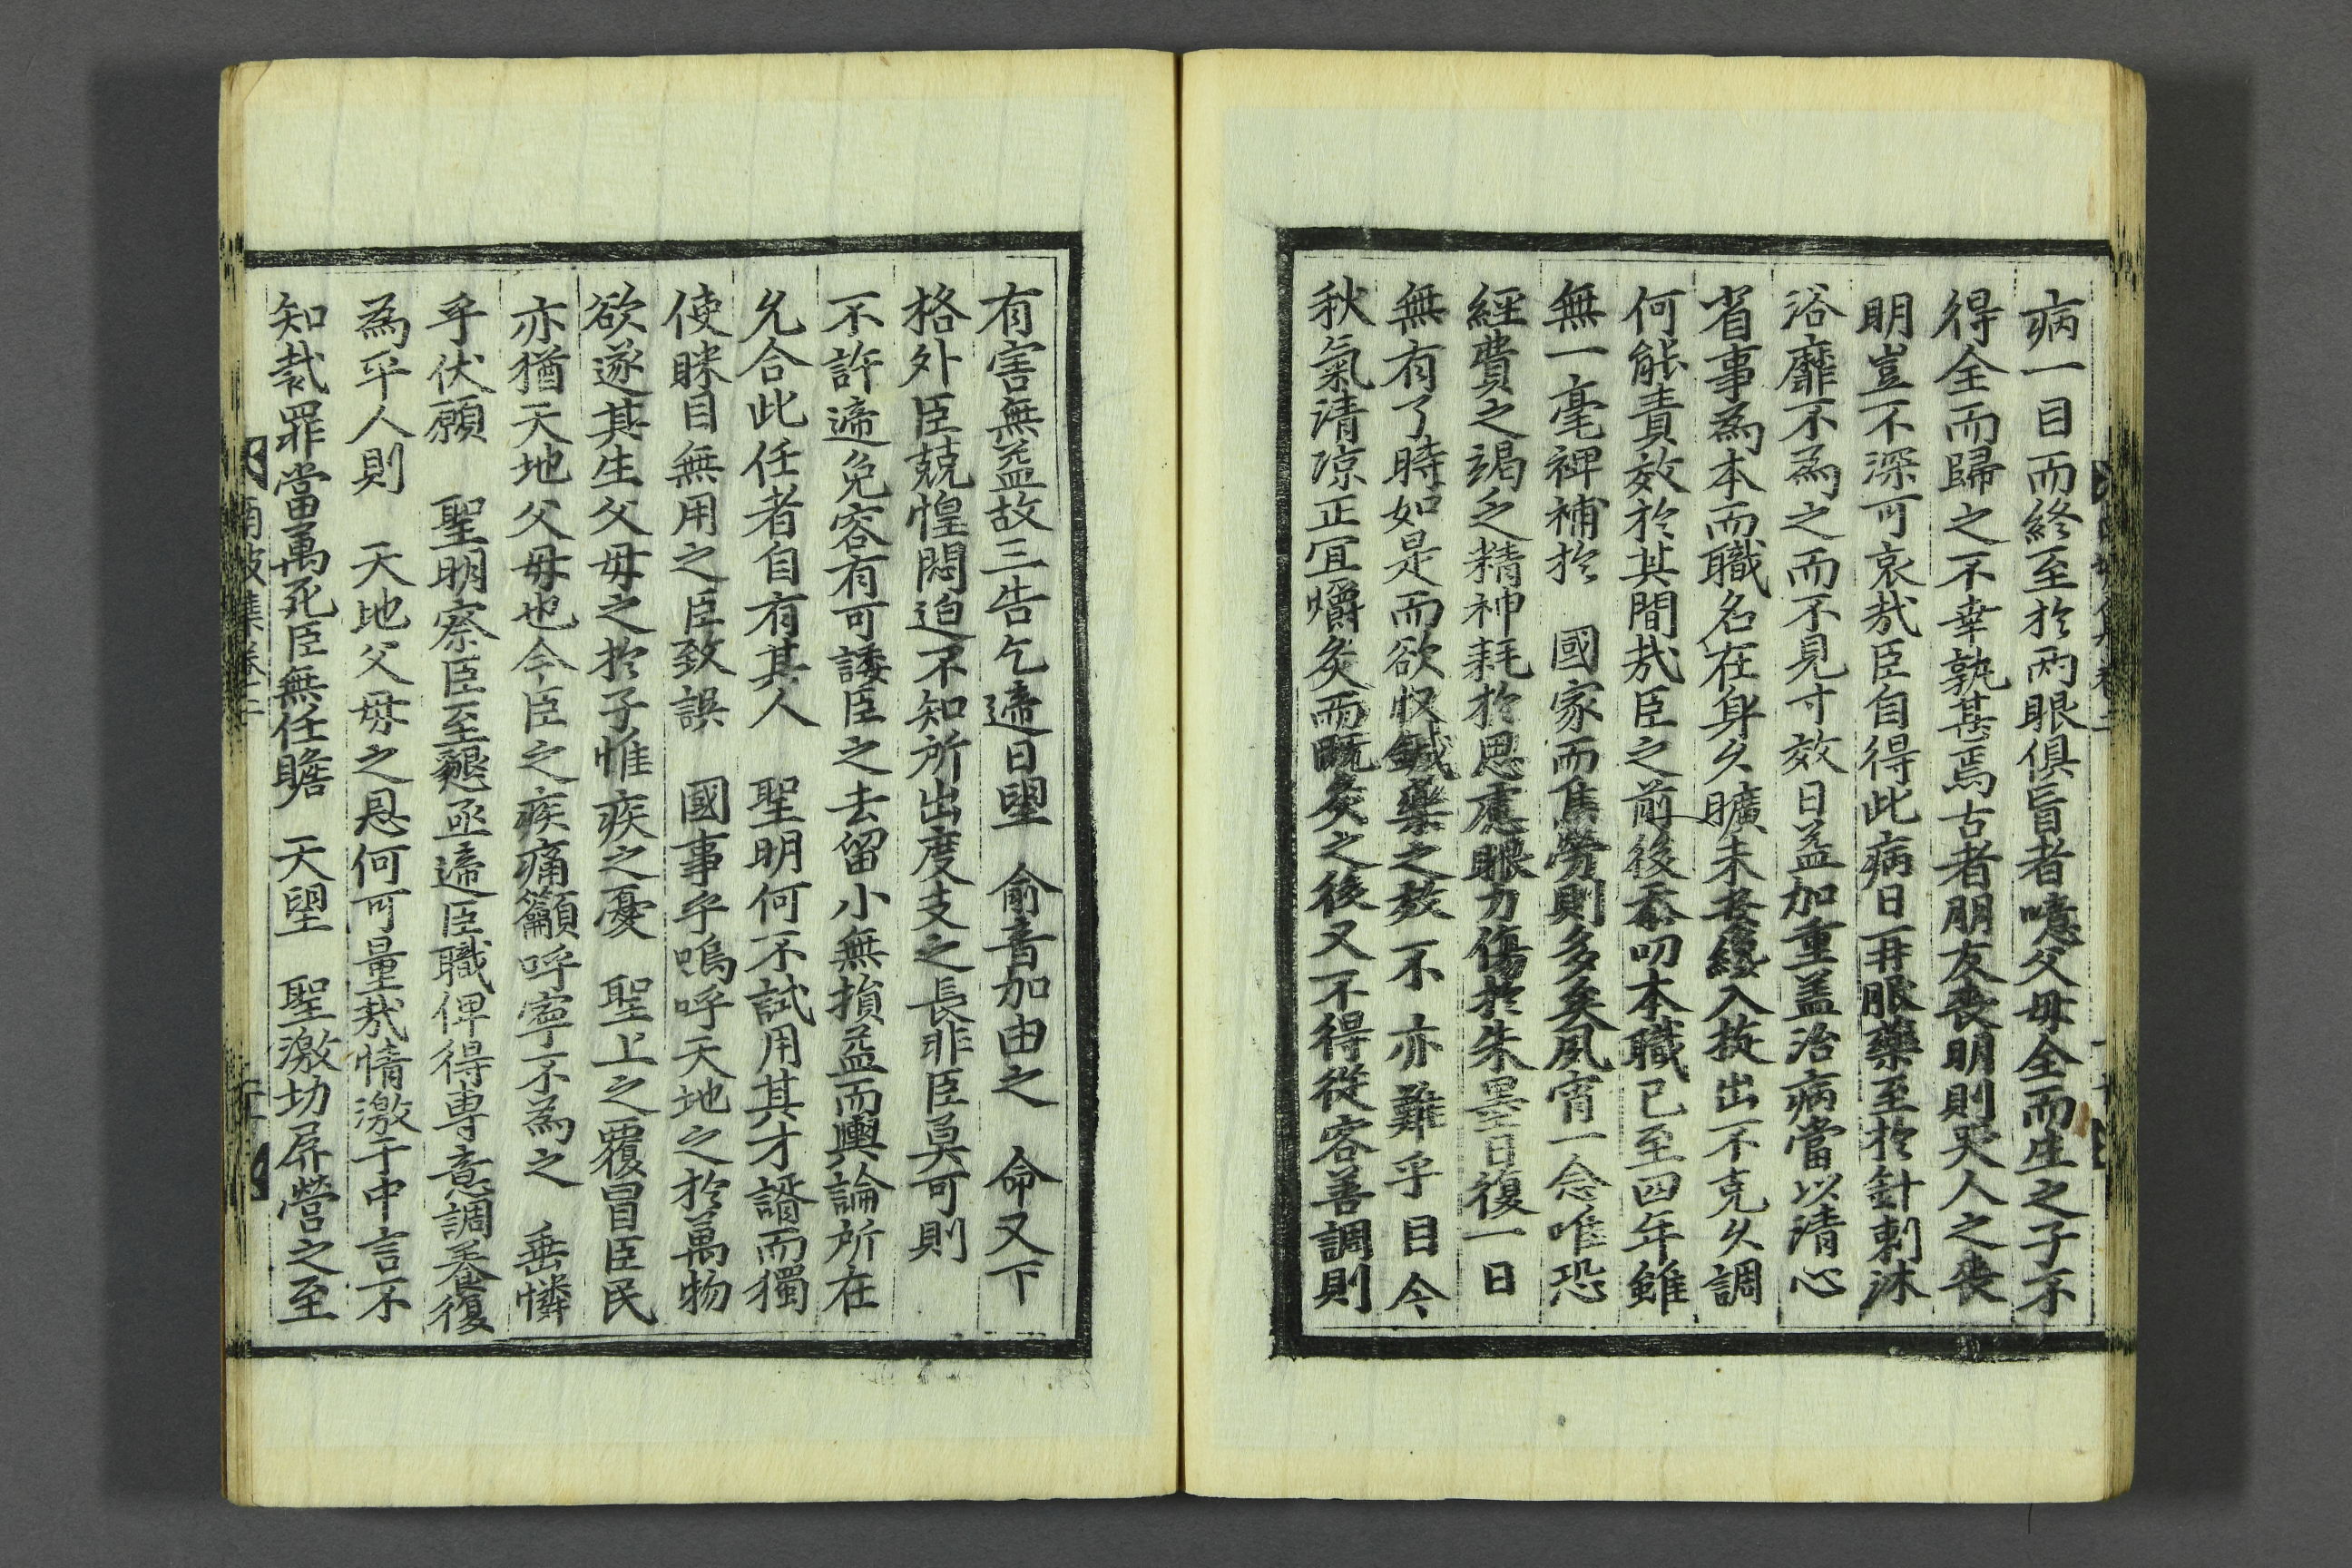 病一目而終至於兩眼俱盲者噫父母全而生之子不
得全而歸之不幸孰甚焉古者朋友喪明則哭人之喪
明豈不深可哀哉臣自得此病日再服藥至於針刺沐
浴靡不為之而不見寸效日益加重盖治病當以清心
省事為本而職名在身久曠未安纔入旋出不克久調
何能責效於其間哉臣之前後忝叨本職已至四年雖
無一毫裨補於　國家而焦勞則多矣夙宵一念唯恐
經費之竭乏精神耗於思慮眼力傷於朱墨日復一日
無有了時如是而欲收鍼藥之效不亦難乎目今
秋氣清凉正宜爝灸而既灸之後又不得從容善調則
有害無益故三告乞遆日望　俞音加由之　命又下
格外臣兢惶悶迫不知所出度支之長非臣莫可則
不許遆免容有可諉臣之去留小無損益而輿論所在
允合此任者自有其人　聖明何不試用其才諝而獨
使眯目無用之臣致誤　國事乎嗚呼天地之於萬物
欲遂其生父母之於子惟疾之憂　聖上之覆冒臣民
亦猶天地父母也今臣之疾痛籲呼寧不為之　垂憐
乎伏願　聖明察臣至懇亟遆臣職俾得專意調養復
為平人則　天地父母之恩何可量哉情激于中言不
知裁罪當萬死臣無任瞻　天望　聖激切屛營之至